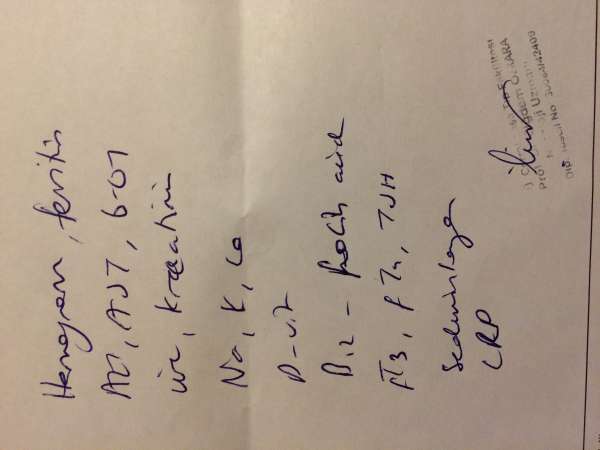 Hemogram, ferritin
ALT, AST, GGT
üre, kreatinin
Na, K, Ca
D-vit
B12 - folik acid
fT3, fT4, TSH
Sedimantasyon
CRP
Prof
KARA
Uzmanı
Dip No